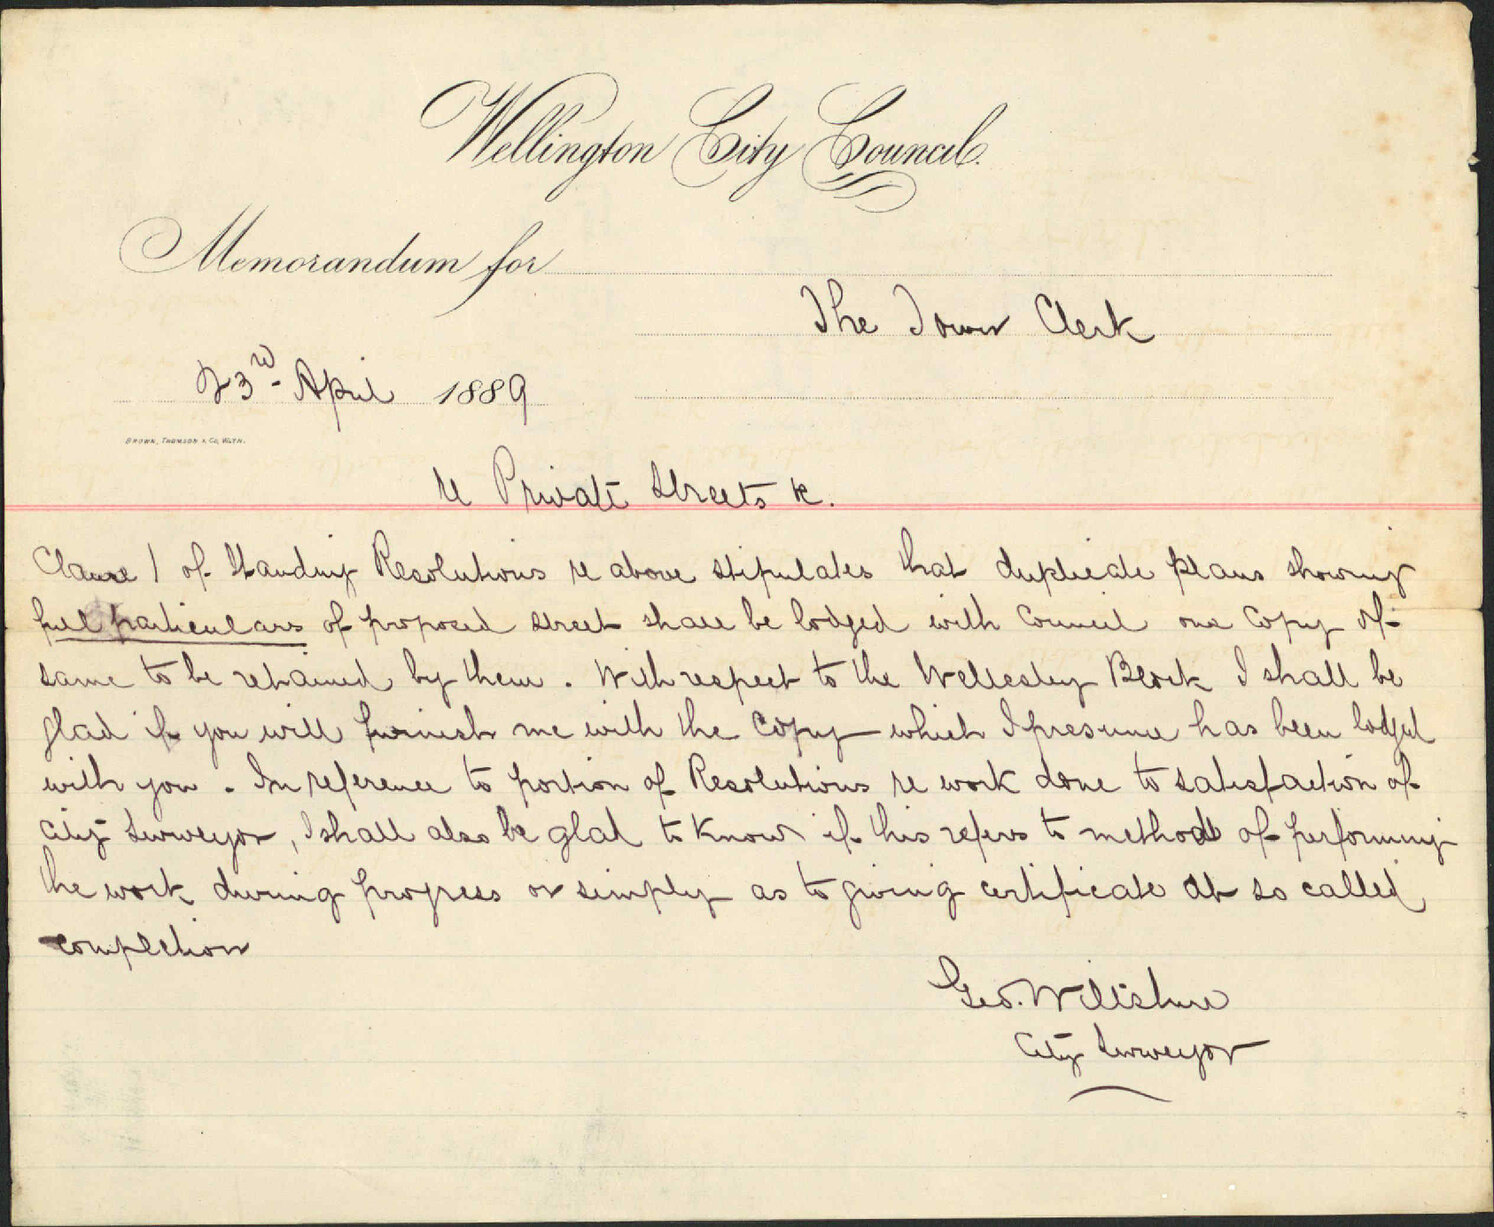 Wellington City Council.
Memorandum for
The Town Clerk
23rd April 1889
BROWN, THOMSON & Co, WGTN.
re Private Streets &c.
Clause 1 of Standing Resolutions re above stipulates that duplicate plans showing
full particulars of proposed street shall be lodged with Council one Copy of
same to be retained by them. With respect to the Wellesley Block I shall be
glad if you will furnish me with the Copy which I presume has been lodged
with you. In reference to portion of Resolutions re work done to satisfaction of
City Surveyor, I shall also be glad to know if this refers to method of performing
the work during progress or simply as to giving certificate at so called
completion
Geo. Wiltshire
City Surveyor